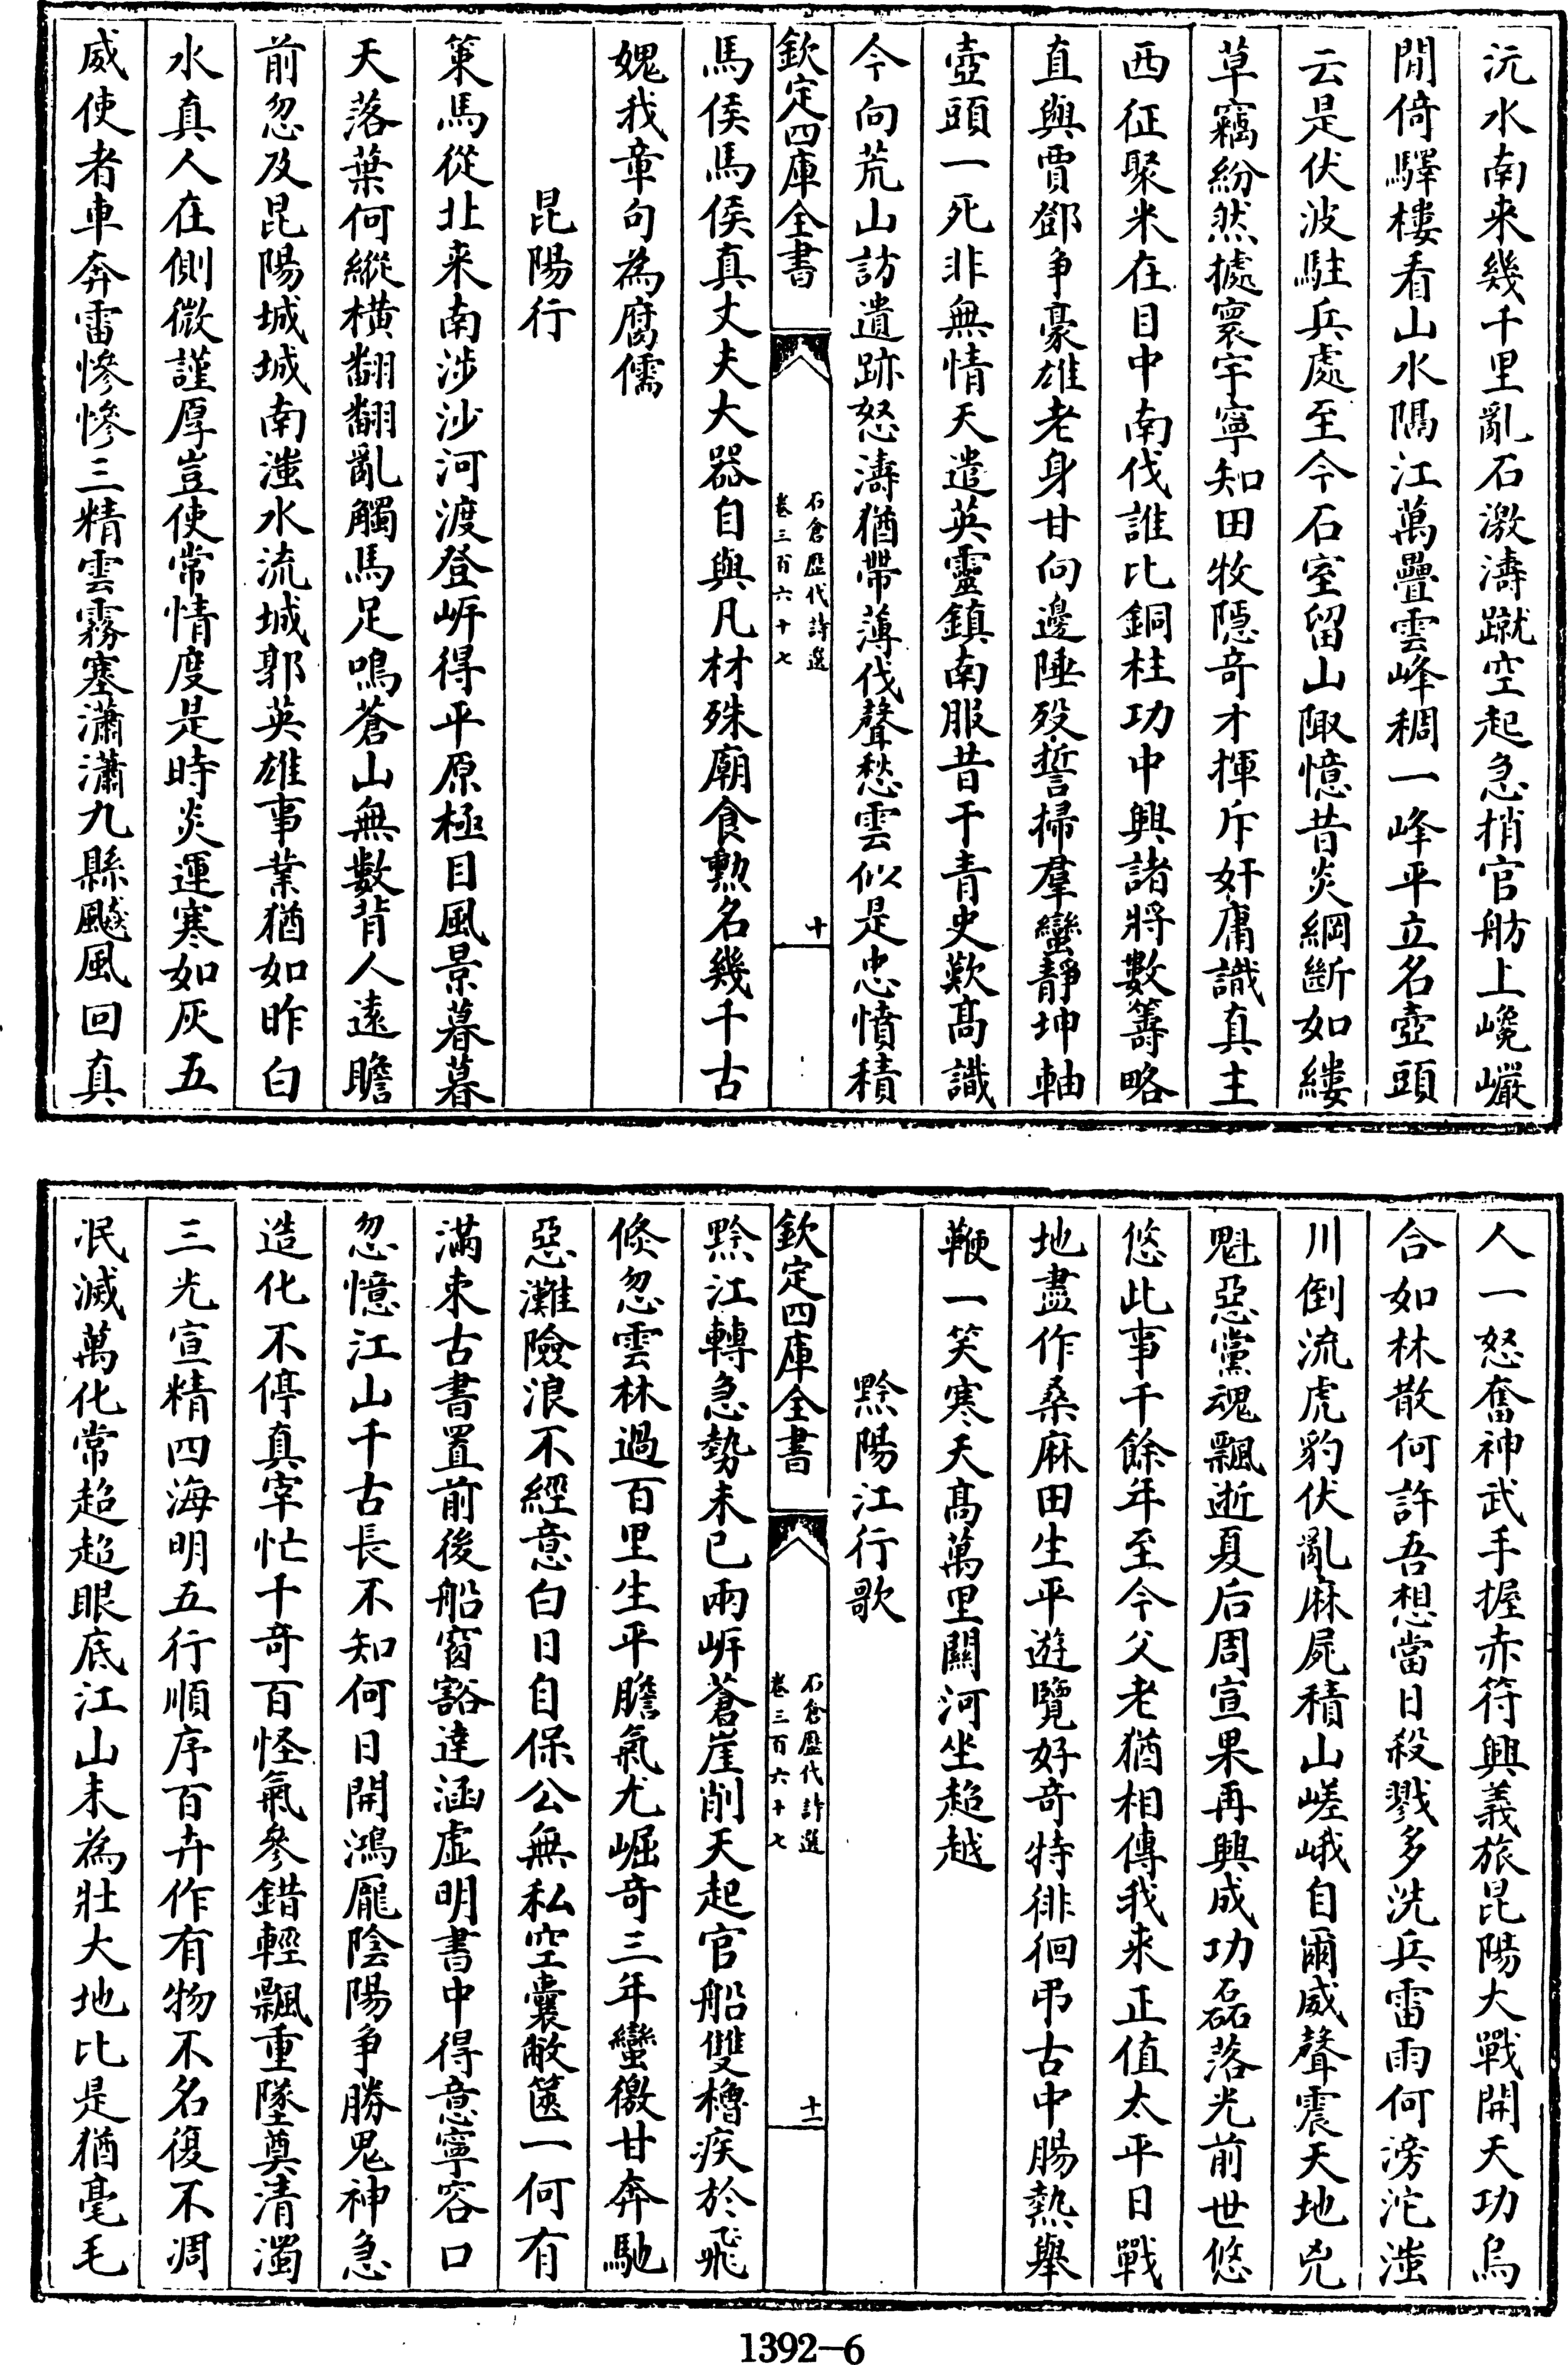 沅水南来幾千里亂石激濤蹴空起急捎官舫上巉巖
閒倚驛樓看山水隅江萬疊雲峰稠一峰平立名壺頭
云是伏波駐兵處至今石室留山陬憶昔炎綱斷如縷
草竊紛然據寰宇寧知田牧隱奇才揮斥奸庸識真主
西征聚米在目中南伐誰比銅柱功中興諸將數籌略
直與賈鄧争豪雄老身甘向邊陲殁誓掃羣蠻靜坤軸
壺頭一死非無情天遣英靈鎮南服昔干青史歎髙識
今向荒山訪遺跡怒濤猶帶薄伐聲愁雲似是忠憤積
欽定四庫全書
石倉歴代詩選
卷三百六十七
十
馬侯馬侯真丈夫大器自與凡材殊廟食勲名幾千古
媿我章句為腐儒
昆陽行
策馬從北来南涉沙河渡登㟁得平原極目風景暮暮
天落葉何縱横翻翻亂觸馬足鳴蒼山無數背人逺瞻
前忽及昆陽城城南滍水流城郭英雄事業猶如昨白
水真人在側微謹厚豈使常情度是時炎運寒如灰五
威使者車奔雷慘慘三精雲霧塞瀟瀟九縣飈風回真
人一怒奮神武手握赤符興義旅昆陽大戰開天功烏
合如林散何許吾想當日殺戮多洗兵雷雨何滂沱滍
川倒流虎豹伏亂麻屍積山嵯峨自爾威聲震天地兇
魁惡黨魂飄逝夏后周宣果再興成功磊落光前世悠
悠此事千餘年至今父老猶相傳我来正值太平日戰
地盡作桑麻田生平遊覽好奇特徘徊弔古中腸熱舉
鞭一笑寒天髙萬里關河坐超越
黔陽江行歌
欽定四庫全書
石倉歴代詩選
卷三百六十七
十一
黔江轉急勢未已兩㟁蒼崖削天起官船雙櫓疾於飛
倐忽雲林過百里生平膽氣尤崛奇三年蠻徼甘奔馳
惡灘險浪不經意白日自保公無私空囊敝篋一何有
滿束古書置前後船窗豁達涵虛明書中得意寧容口
忽憶江山千古長不知何日開鴻厖陰陽争勝鬼神急
造化不停真宰忙千奇百怪氣參錯輕飄重墜奠清濁
三光宣精四海明五行順序百卉作有物不名復不凋
泯滅萬化常超超眼底江山未為壯大地比是猶毫毛
1392-6